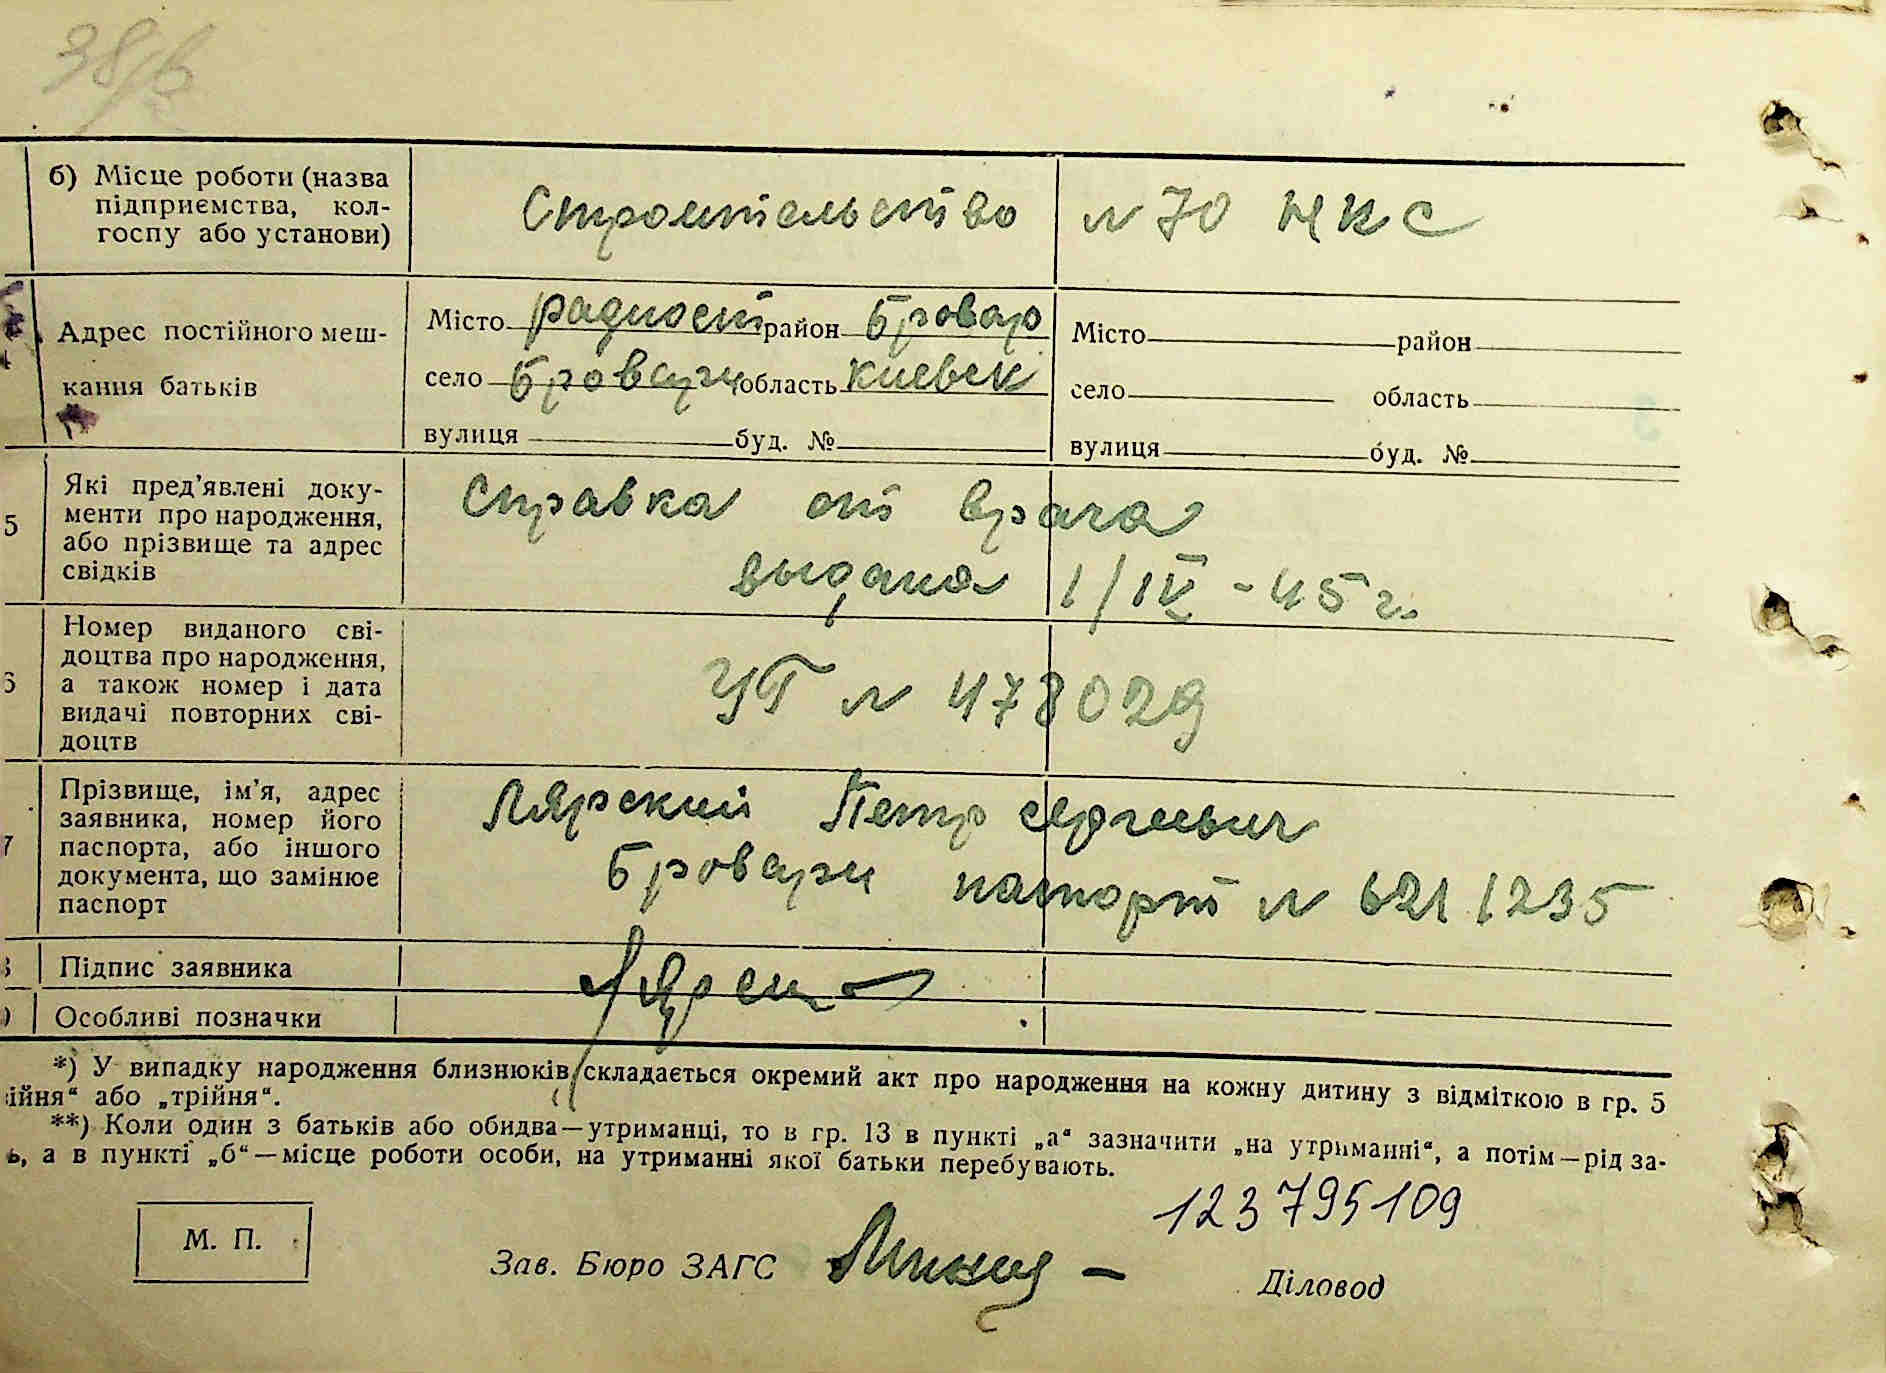 38/б
б) Місце роботи (назва
підприємства, кол-
госпу або установи)
Строительство № 70 НКС
Адрес постійного меш-
кання батьків
Місто радиост район Бровар
село Бровари область Киевск
вулиця буд. №
Місто район
село область
вулиця буд. №
5
Які пред'явлені доку-
менти про народження,
або прізвище та адрес
свідків
Справка от врача
выдана 1/IV - 45 г.
6
Номер виданого сві-
доцтва про народження,
а також номер і дата
видачі повторних сві-
доцтв
УГ № 478029
7
Прізвище, ім'я, адрес
заявника, номер його
паспорта, або іншого
документа, що замінює
паспорт
Лярский Петр Сергеевич
Бровари паспорт № 6211235
Підпис заявника
Особливі позначки
*) У випадку народження близнюків складається окремий акт про народження на кожну дитину з відміткою в гр. 5
ійня“ або „трійня“.
**) Коли один з батьків або обидва—утриманці, то в гр. 13 в пункті „а“ зазначити „на утриманні“, а потім—рід за-
ь, а в пункті „б“—місце роботи особи, на утриманні якої батьки перебувають.
123795109
М. П.
Зав. Бюро ЗАГС
Діловод